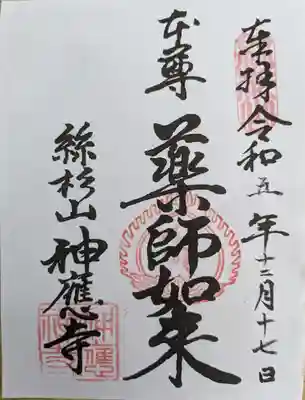 奉拝 令和五年十二月十七日
本尊 薬師如来
絲杉山 神應寺